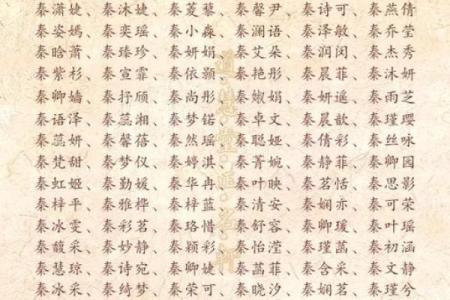 秦潇婕、秦沐婕、秦菱藜、秦馨尹、秦诗可、秦燕倩
秦姿嫣、秦奕瑶、秦小森、秦澜语、秦泽敏、秦乔莹
秦晗萧、秦臻珍、秦妍娟、秦艾朵、秦润闵、秦杰秀
秦紫杉、秦宣霏、秦依颍、秦艳彤、秦晨菲、秦沐妍
秦卿嫱、秦抒颀、秦尚彤、秦婌娟、秦妍遥、秦雨芝
秦语泽、秦蕊湘、秦梦锘、秦卓文、秦晨歆、秦瑾璎
秦蕊妍、秦馨蓓、秦然瑶、秦聪娅、秦倩彩、秦丝咏
秦梵甜、秦梦仪、秦婷淇、秦菁婉、秦静菲、秦卿园
秦虹姬、秦勤媛、秦华冉、秦叶映、秦茗恬、秦思影
秦梓平、秦雅桦、秦梓蓝、秦清安、秦娴亦、秦可荣
秦冰雯、秦彩茗、秦珞惜、秦舒容、秦卿瑗、秦叶瑶
秦馥采、秦妙静、秦颖彩、秦怡滢、秦瑾菡、秦初涵
秦慧琼、秦诗宛、秦卿婕、秦菡菲、秦含采、秦文静
秦冰采、秦绮梦、秦荣可、秦晓汐、秦娴茗、秦瑾兮